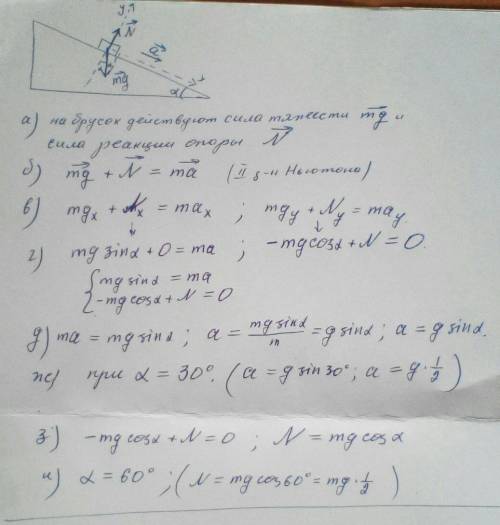 y↑
N⃗
a⃗
mg⃗
α
а) на брусок действуют сила тяжести mg⃗ и
сила реакции опоры N⃗
б) mg⃗ + N⃗ = ma⃗ (II з-н Ньютона)
в) mgₓ + Nₓ = maₓ ; mg_y + N_y = ma_y
г) mg sinα + 0 = ma ; -mg cosα + N = 0.
{mg sinα = ma
-mg cosα + N = 0
д) ma = mg sinα ; a = mg sinα/m = g sinα ; a = g sinα.
ж) при α = 30°. (a = g sin 30° ; a = g · 1/2)
з) -mg cosα + N = 0 ; N = mg cosα
и) α = 60° ; (N = mg cos 60° = mg · 1/2)